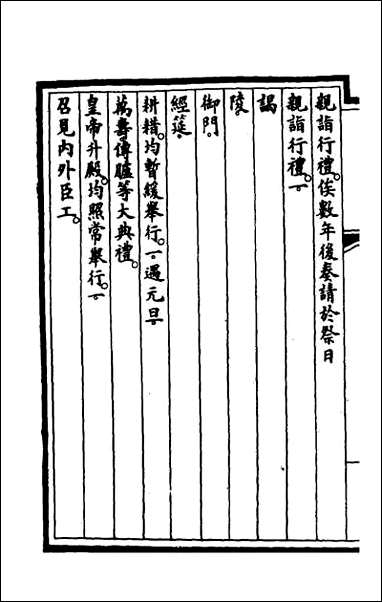 親詣行禮。俟數年後奏請於祭日
親詣行禮。一
謁
陵。
御門。
經筵。
耕耤。均暫緩舉行。一遇元旦
萬壽傳臚等大典禮。
皇帝升殿。均照常舉行。一
召見內外臣工。